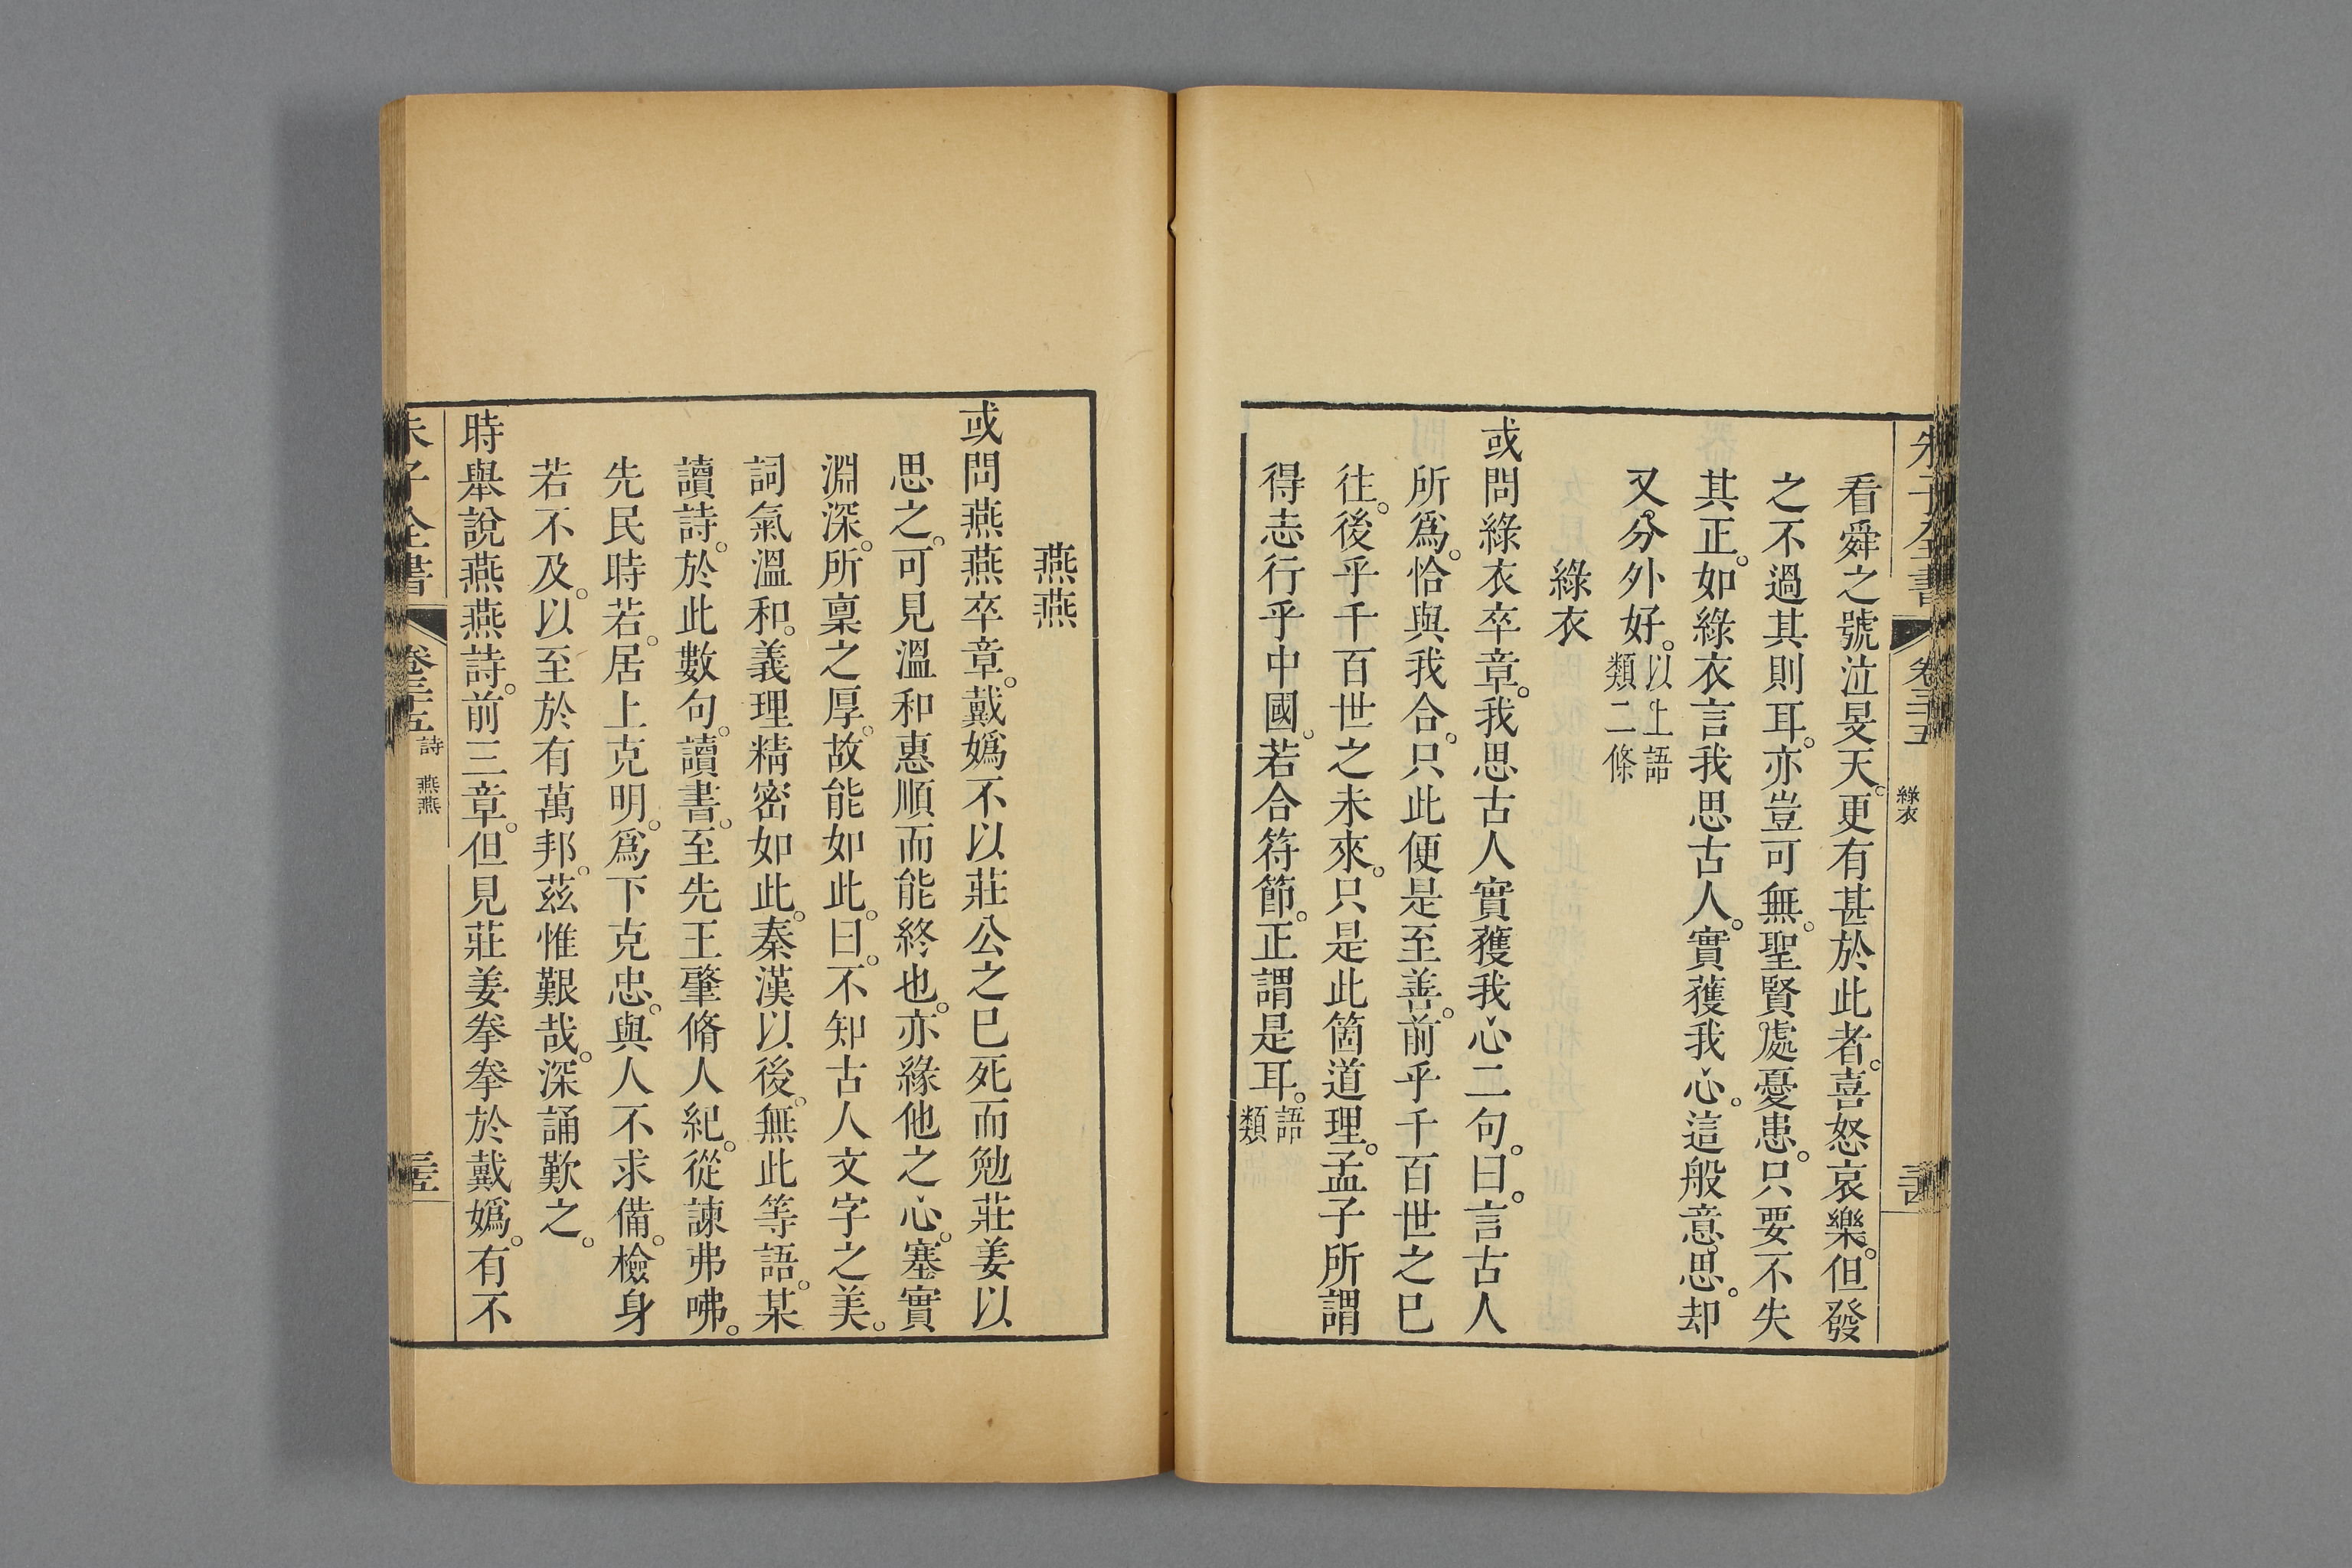 朱子全書 卷三十五 綠衣
看舜之號泣旻天。更有甚於此者。喜怒哀樂。但發
之不過其則耳。亦豈可無。聖賢處憂患。只要不失
其正。如綠衣言我思古人。實獲我心。這般意思。却
又分外好。以上語類二條
綠衣
或問綠衣卒章。我思古人實獲我心二句。曰。言古人
所爲。恰與我合。只此便是至善。前乎千百世之已
往。後乎千百世之未來。只是此箇道理。孟子所謂
得志行乎中國。若合符節。正謂是耳。語類
燕燕
或問燕燕卒章。戴嬀不以莊公之已死而勉莊姜以
思之。可見溫和惠順而能終也。亦緣他之心。塞實
淵深。所稟之厚。故能如此。曰。不知古人文字之美。
詞氣溫和。義理精密如此。秦漢以後。無此等語。某
讀詩。於此數句。讀書。至先王肇脩人紀。從諫弗咈。
先民時若。居上克明。爲下克忠。與人不求備。檢身
若不及。以至於有萬邦。茲惟艱哉。深誦歎之。
時舉說燕燕詩。前三章。但見莊姜拳拳於戴嬀。有不
朱子全書 卷三十五 詩 燕燕